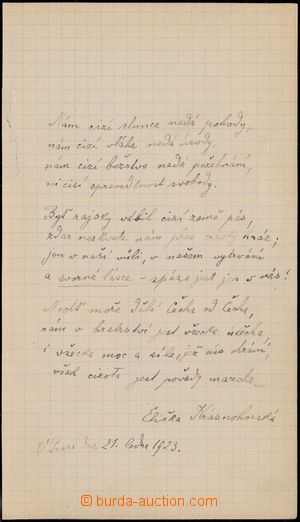 Nám cizí slunce nedá pohody,
nám cizí vláha nedá úrody,
nám cizí božstvo nedá požehnání,
ni cizí spravedlnost svobody.
Byť rajsky vábil cizí země pás,
zdar nezkvete nám přes cizoty mráz;
jen v naší vůli, v našem vytrvání
a svorné lásce – spása jest jen v nás!
Nechť moře dělí Čecha od Čecha,
nám v bratrství jest všecka útěcha
i všecka moc a síla, jež nás chrání,
však cizota jest povždy macecha.
Eliška Krásnohorská
V Praze dne 21. ledna 1923.
© burda-auction.com